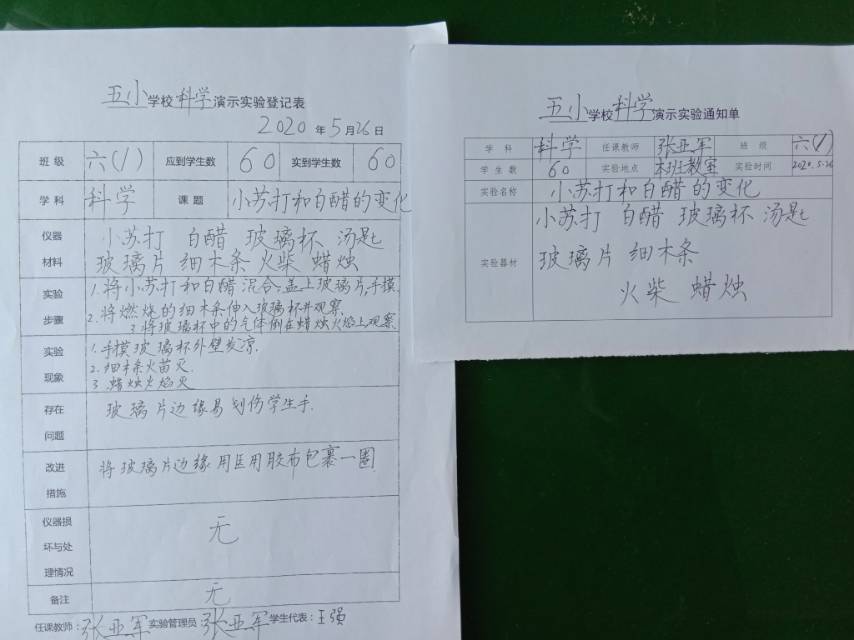 五小学校科学演示实验登记表
2020年5月26日
班级 六(1) 应到学生数 60 实到学生数 60
学科 科学 课题 小苏打和白醋的变化
仪器材料 小苏打 白醋 玻璃杯 汤匙
玻璃片 细木条 火柴 蜡烛
实验步骤 1.将小苏打和白醋混合,盖上玻璃片,手摸.
2.将燃烧的细木条伸入玻璃杯并观察.
3.将玻璃杯中的气体倒在蜡烛火焰上,观察
实验现象 1.手摸玻璃杯外壁发凉.
2.细木条火苗灭.
3.蜡烛火焰灭
存在问题 玻璃片边缘易划伤学生手.
改进措施 将玻璃片边缘用医用胶布包裹一圈
仪器损坏与处理情况 无
备注 无
任课教师:张亚军 实验管理员 张亚军 学生代表:王强
五小学校科学演示实验通知单
学科 科学 任课教师 张亚军 班级 六(1)
学生数 60 实验地点 本班教室 实验时间 2020.5.26
实验名称 小苏打和白醋的变化
实验器材 小苏打 白醋 玻璃杯 汤匙
玻璃片 细木条
火柴 蜡烛